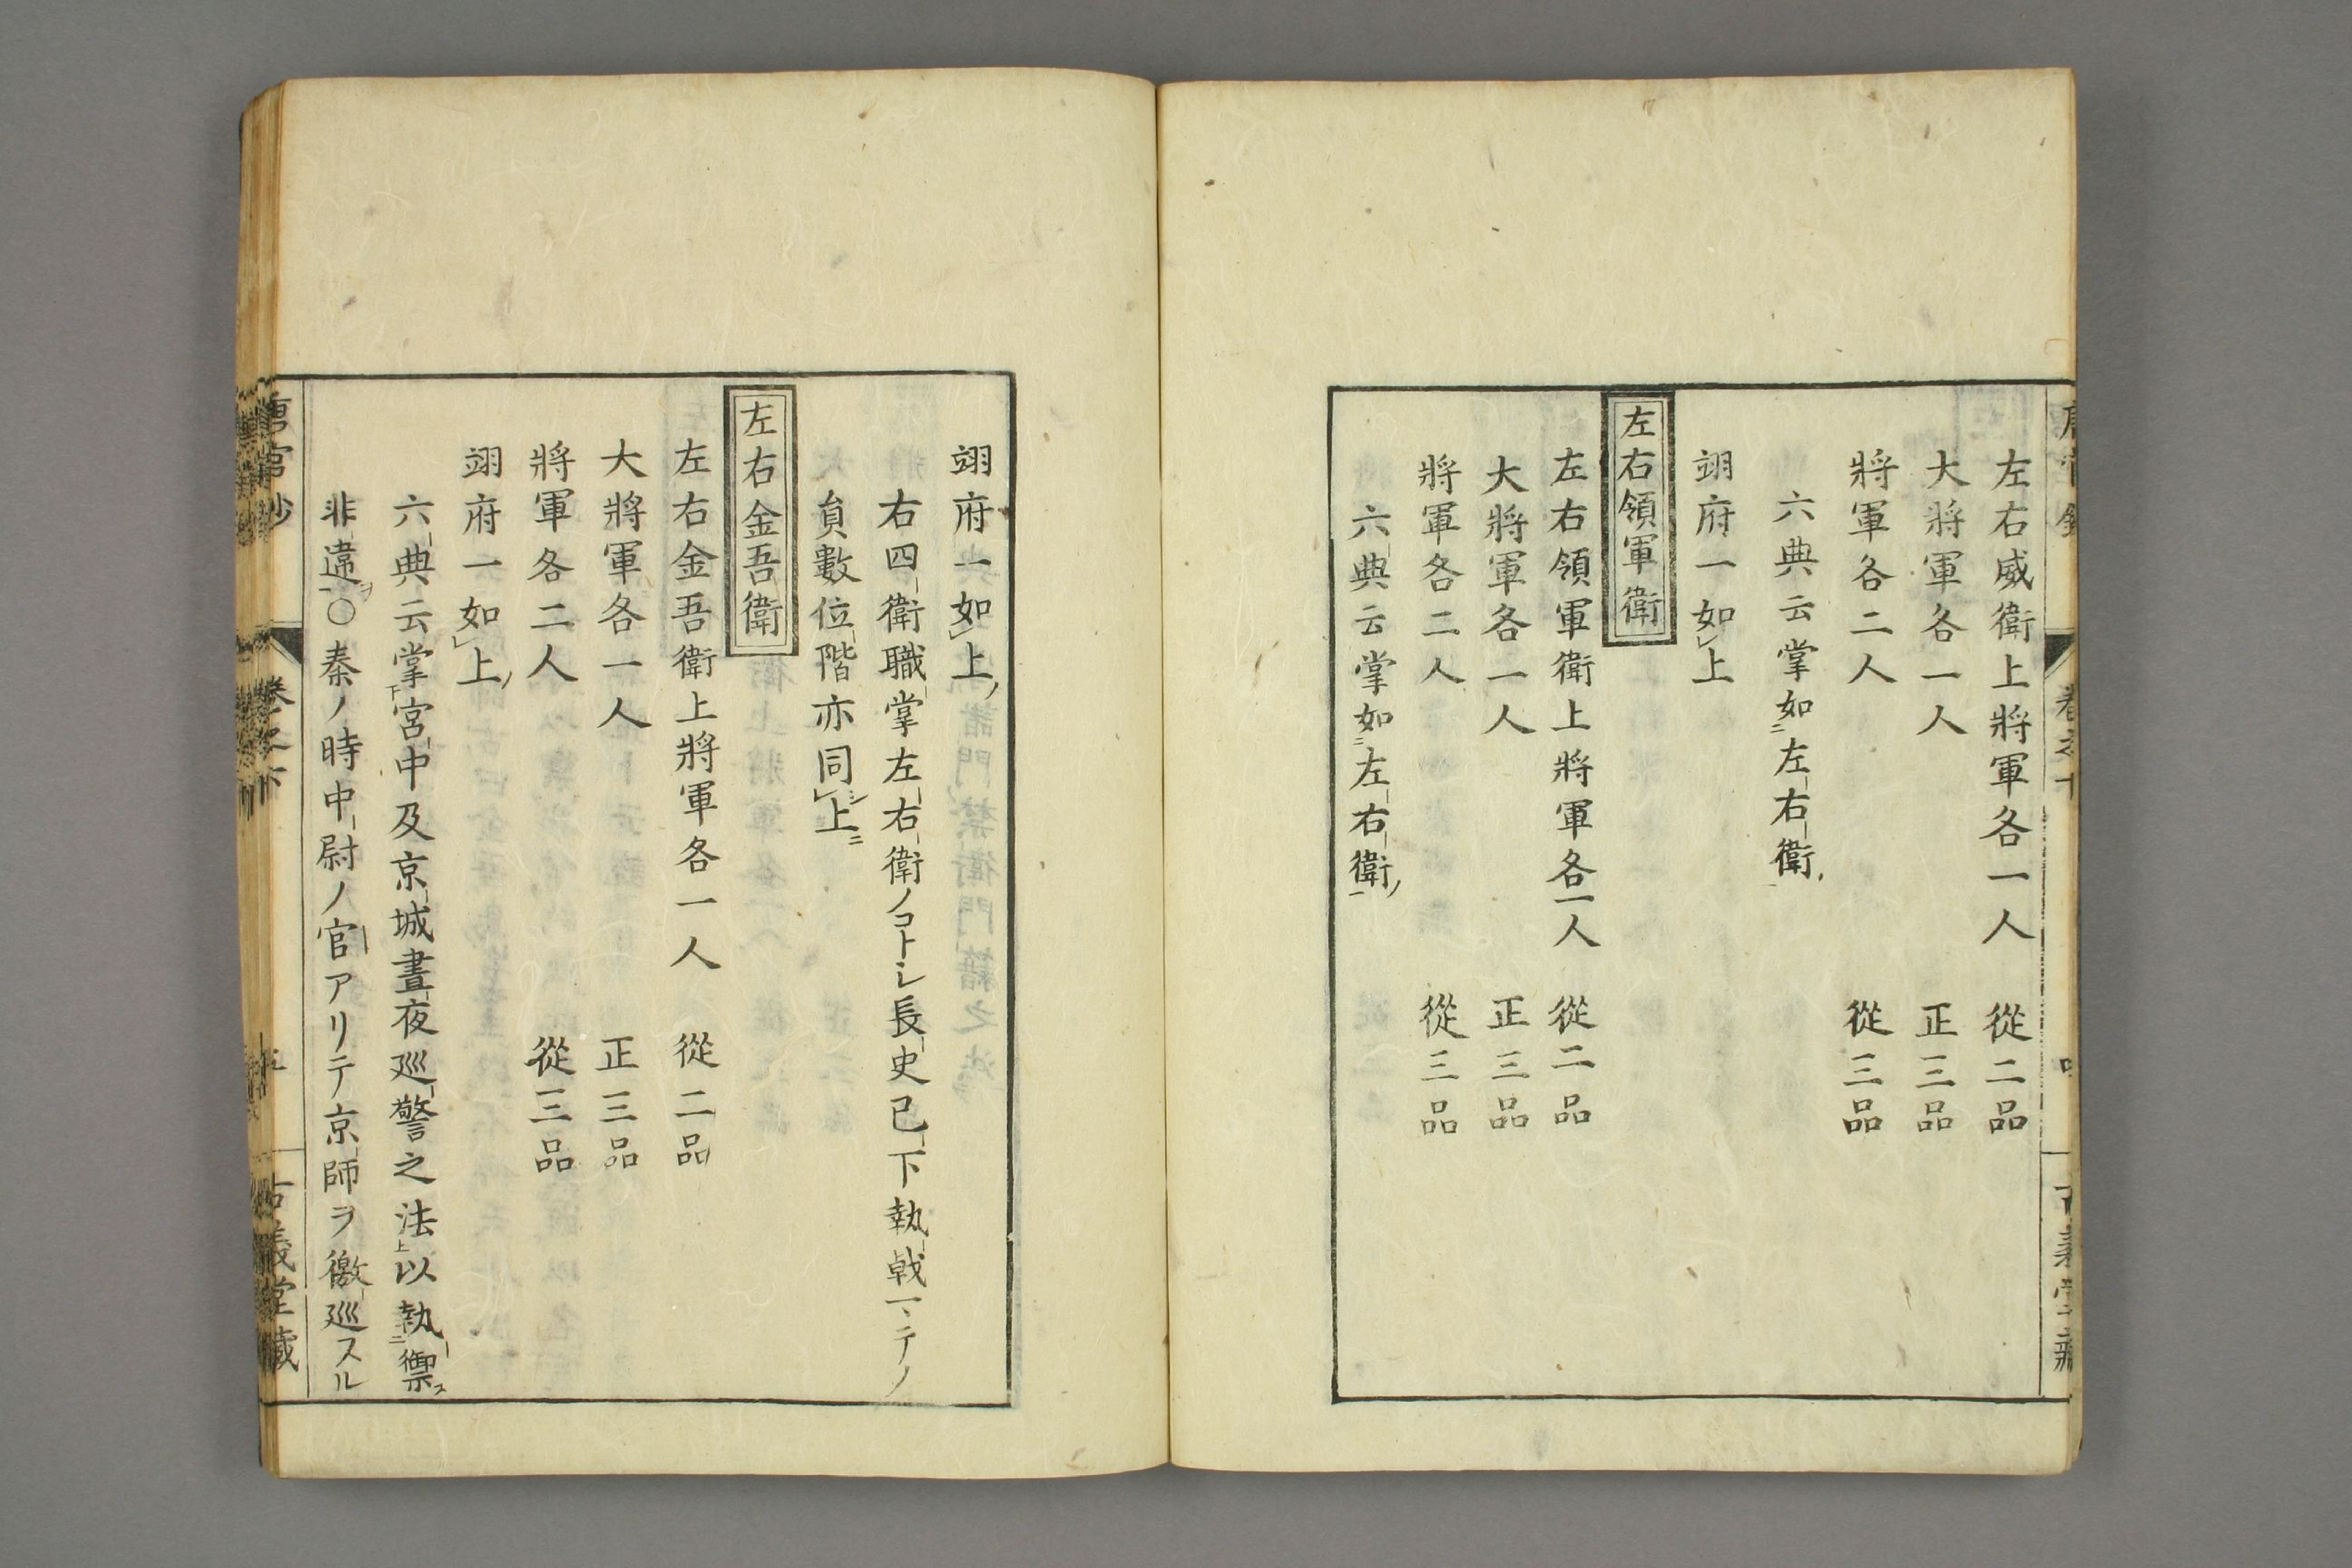 左右威衛上將軍各一人　從二品
大將軍各一人　正三品
將軍各二人　從三品
六典云掌如二左右衛一
翊府一如レ上
左右領軍衛
左右領軍衛上將軍各一人　從二品
大將軍各一人　正三品
將軍各二人　從三品
六典云掌如二左右衛一
翊府一如レ上
右四衛職掌左右衛ノコトシ長史已下執戟マテノ
員數位階亦同シレ上ニ
左右金吾衛
左右金吾衛上將軍各一人　從二品
大將軍各一人　正三品
將軍各二人　從三品
翊府一如レ上
六典云掌下宮中及京城晝夜巡警之法上以執二禦ス
非違一ヲ○秦ノ時中尉ノ官アリテ京師ヲ徼巡スル
唐官鈔　卷之下　古義堂藏